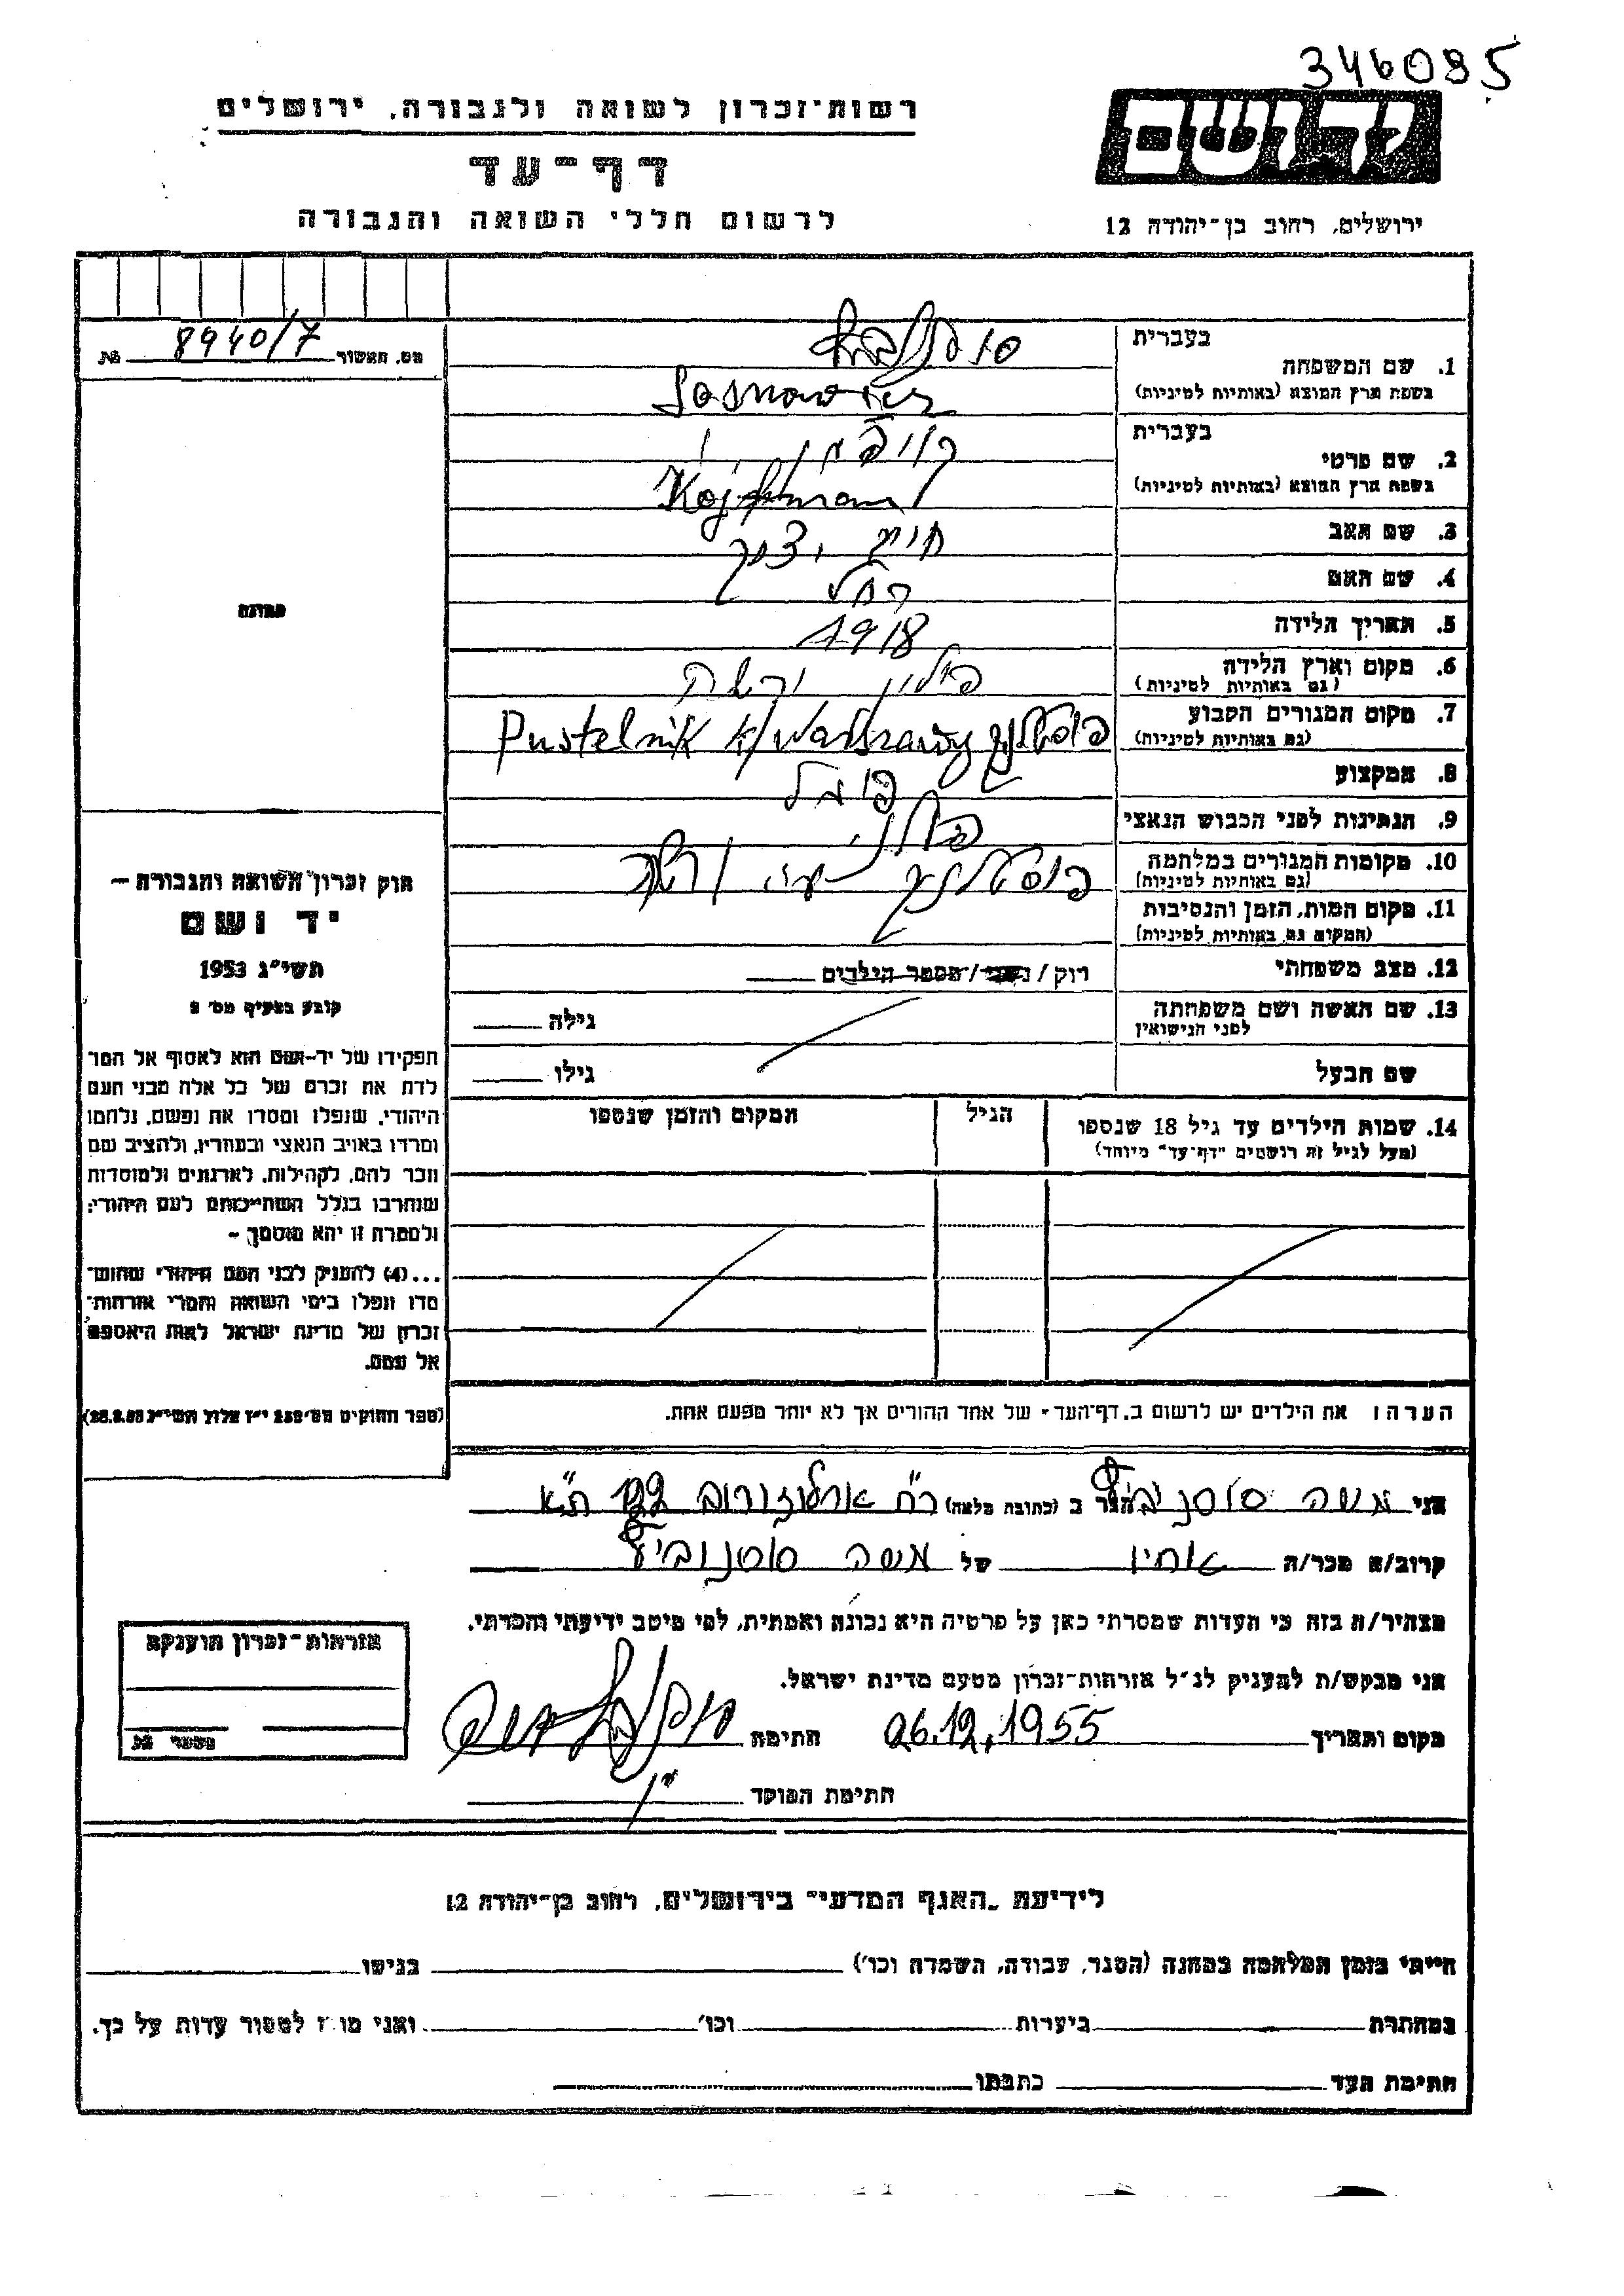 346095
רשות-זכרון לשואה ולגבורה, ירושלים
דף-עד
לרשום חללי השואה והגבורה
ירושלים, רחוב בן-יהודה 12
מס. האשור 8940/7
בעברית
1. שם המשפחה
בשפת ארץ המוצא (באותיות לטיניות) Sosnowicz
בעברית
2. שם פרטי
בשפת ארץ המוצא (באותיות לטיניות)
3. שם האב חיים
4. שם האם רחל
5. תאריך הלידה 1918
6. מקום וארץ הלידה פולין ורשה
(גם באותיות לטיניות)
7. מקום המגורים הקבוע פוסטלניק Pustelnik k/Warszawy
(גם באותיות לטיניות)
8. המקצוע פועל
9. הנתינות לפני הכבוש הנאצי פולני
10. מקומות המגורים במלחמה פוסטלניק ורשה
(גם באותיות לטיניות)
11. מקום המות, הזמן והנסיבות
(המקום גם באותיות לטיניות)
12. מצב משפחתי רוק / נשוי / מספר הילדים
13. שם האשה ושם משפחתה
לפני הנישואין
גילה
שם הבעל גילו
14. שמות הילדים עד גיל 18 שנספו
(מעל לגיל זה רושמים "דף-עד" מיוחד)
הגיל
המקום והזמן שנספו
הערה: את הילדים יש לרשום ב„דף-העד" של אחד ההורים אך לא יותר מפעם אחת.
תמונה
חוק זכרון השואה והגבורה –
יד ושם
תשי"ג 1953
קובע בסעיף מס' 2
תפקידו של יד-ושם הוא לאסוף אל המו
לדת את זכרם של כל אלה מבני העם
היהודי, שנפלו ומסרו את נפשם, נלחמו
ומרדו באויב הנאצי ובעוזריו, ולהציב שם
וזכר להם, לקהילות, לארגונים ולמוסדות
שנחרבו בגלל השתייכותם לעם היהודי;
ולמטרה זו יהא מוסמך –
...(4) להעניק לבני העם היהודי שהוש-
מדו ונפלו בימי השואה והמרי אזרחות-
זכרון של מדינת ישראל לאות היאספם
אל עמם.
(ספר החוקים מס' 132 י"ז אלול תשי"ג 28.8.53)
אני משה סוסנוביץ הגר ב (כתובת מלאה) רח' ארלוזורוב 122 ת"א
קרוב/ה מכר/ה אחיו של משה סוסנוביץ
מצהיר/ה בזה כי העדות שמסרתי כאן על פרטיה היא נכונה ואמתית, לפי מיטב ידיעתי והכרתי.
אני מבקש/ת להעניק לנ"ל אזרחות-זכרון מטעם מדינת ישראל.
מקום ותאריך 26.12.1955 חתימה
חתימת הפוקד
אזרחות-זכרון הוענקה
לידיעת „האגף המדעי" בירושלים, רחוב בן-יהודה 12
הייתי בזמן המלחמה במחנה (הסגר, עבודה, השמדה וכו') בגיטו
במחתרת ביערות וכו' ואני מוכן למסור עדות על כך.
חתימת העד כתבתו